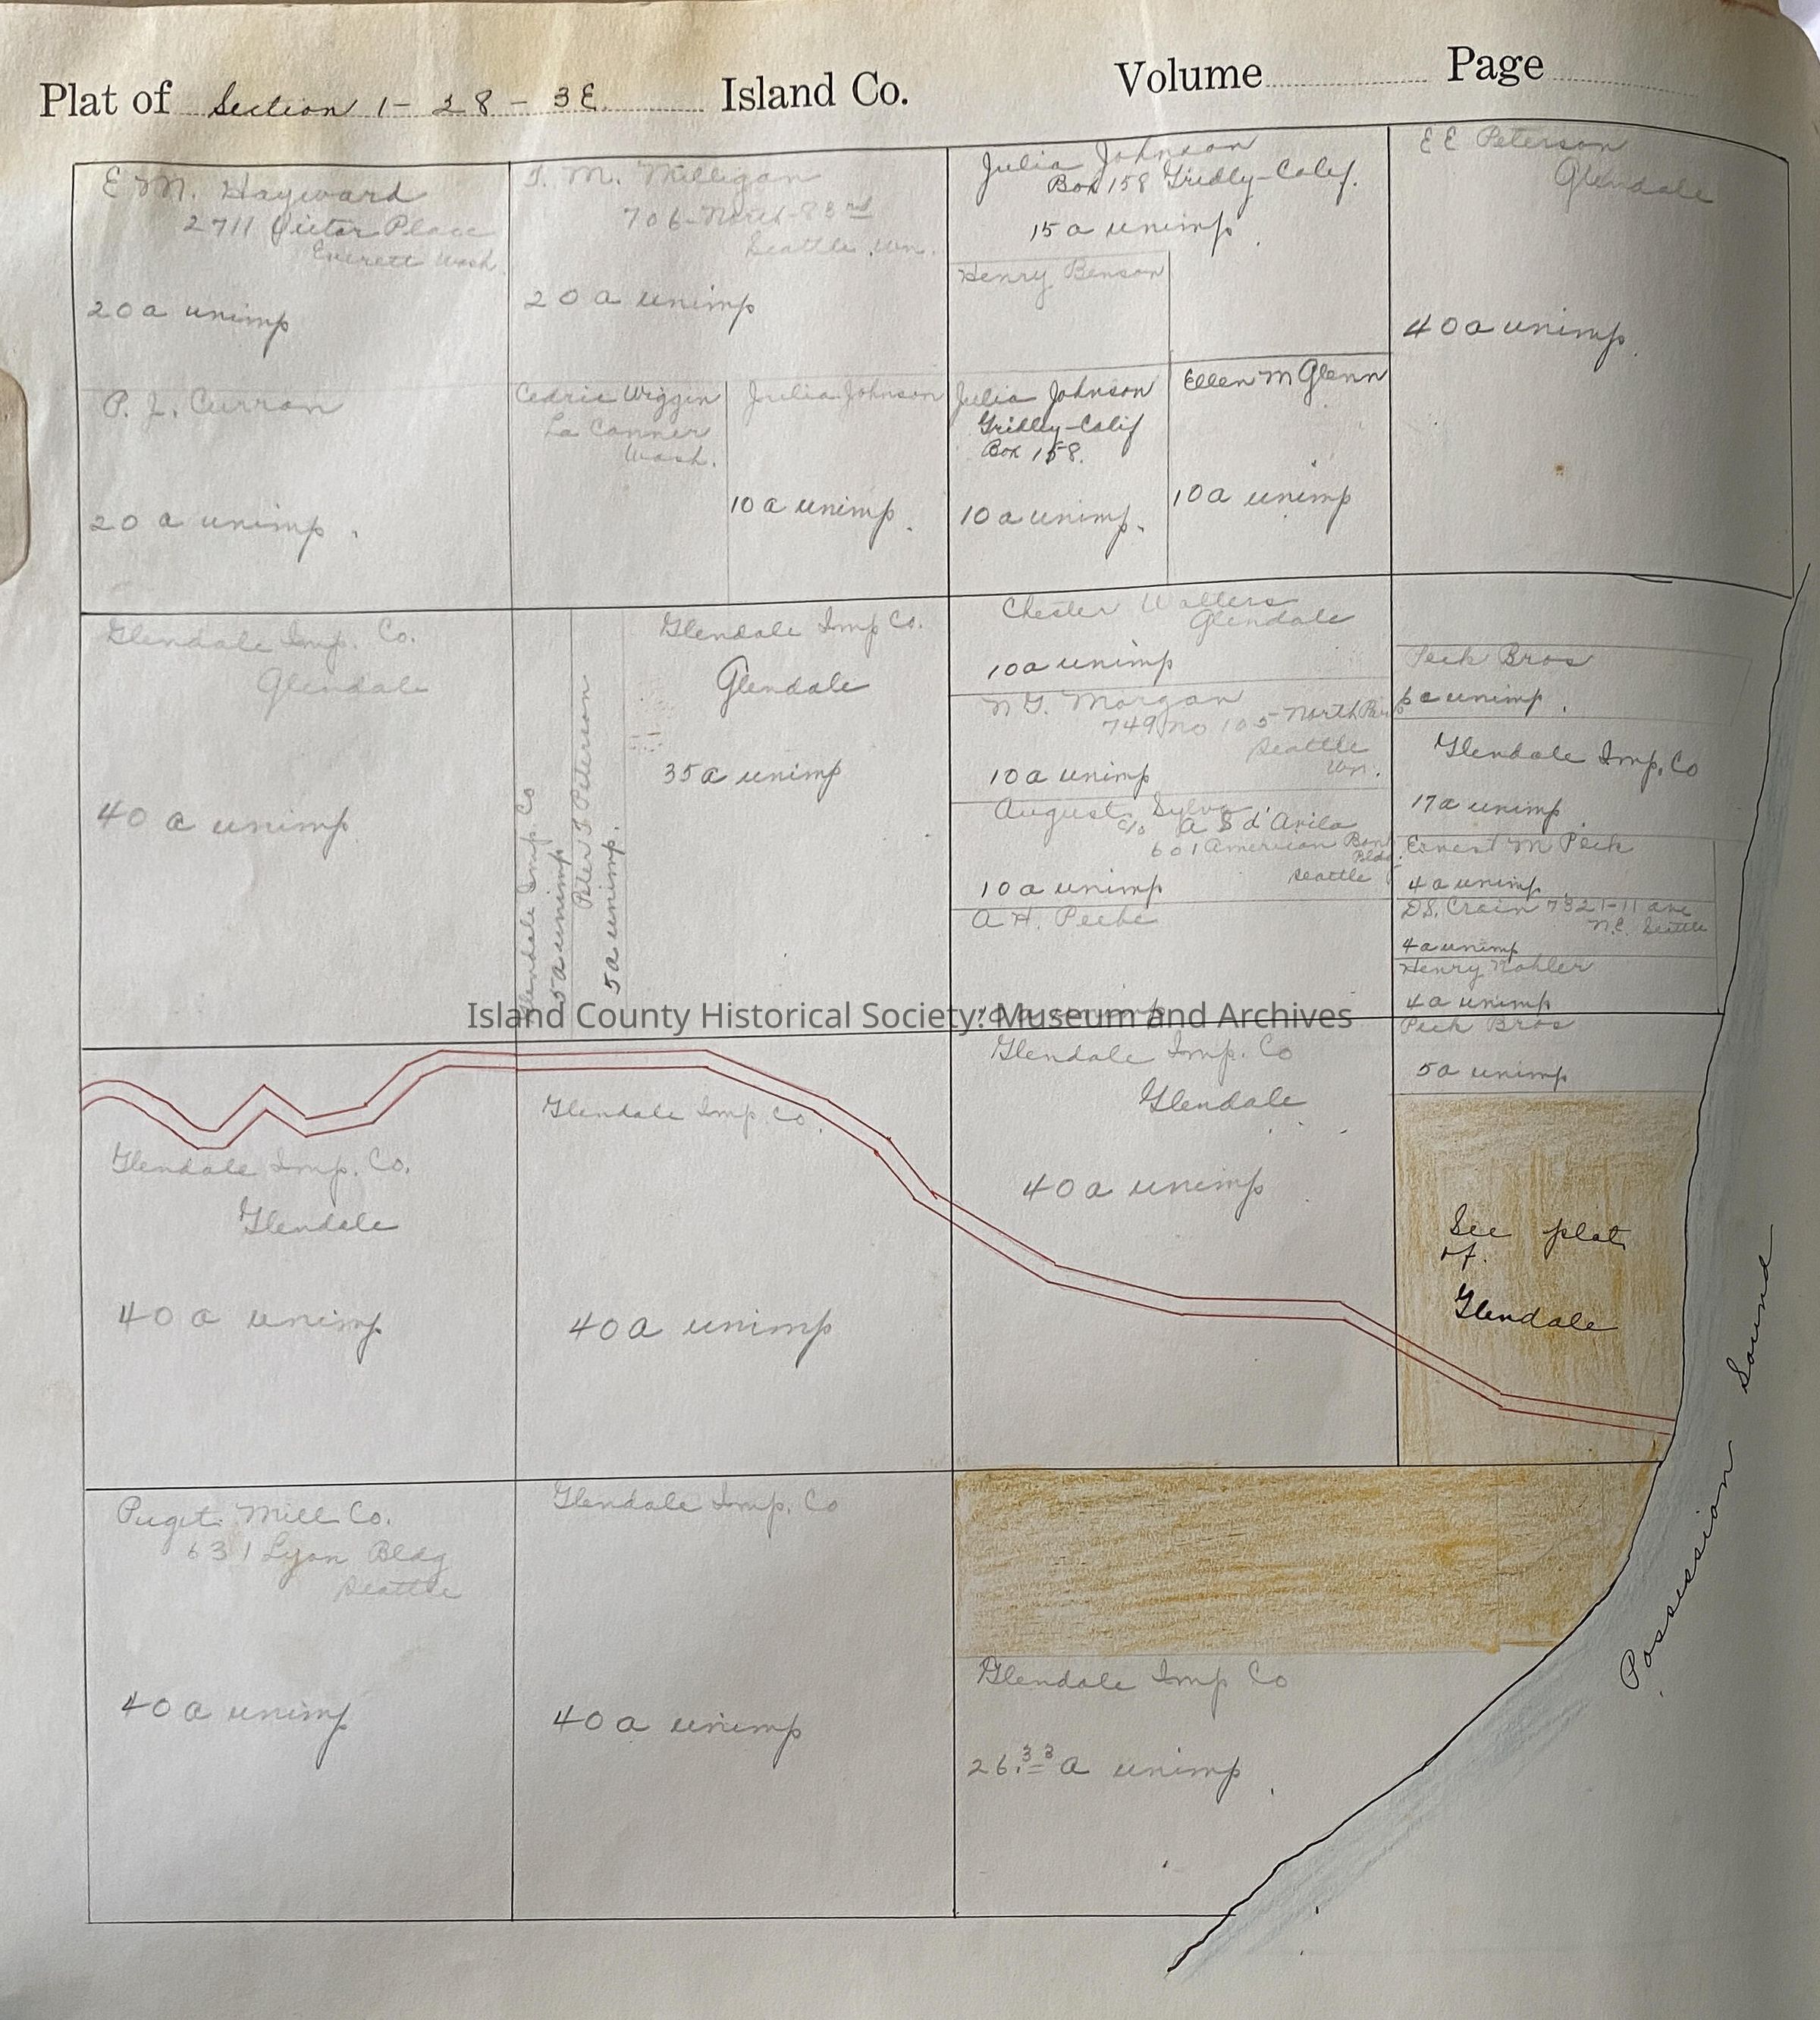 Plat of Section 1 - 28 - 3E. Island Co. Volume Page
E M. Hayward
2711 Victor Place
Everett Wash.
20 a unimp
T. M. Milligan
706-North-83rd
Seattle Wn.
20 a unimp
Julia Johnson
Box 158 Gridly-Calif.
15 a unimp.
Henry Benson
E E Peterson
Glendale
40 a unimp.
P. J. Curran
20 a unimp.
Cedric Wiggin
La Conner
Wash.
Julia Johnson
10 a unimp.
Julia Johnson
Gridley-Calif
Box 158.
10 a unimp.
Ellen M Glenn
10 a unimp
Glendale Imp. Co.
Glendale
40 a unimp
Glendale Imp. Co
5a unimp
Peter J Peterson
5a unimp.
Glendale Imp Co.
Glendale
35 a unimp
Chester Walters
Glendale
10 a unimp
N G. Morgan
749 No 105 North
Seattle
Wn.
10 a unimp
August Sylva
c/o A S d'Avila
601 American Bank
Bldg.
Seattle
10 a unimp
A H. Peebe
10 a unimp
Peck Bros
6 a unimp.
Glendale Imp. Co
17 a unimp.
Ernest M Peck
4 a unimp.
D.S. Crain 7321-11 ave
N.E. Seattle
4 a unimp
Henry Kohler
4 a unimp
Island County Historical Society: Museum and Archives
Peck Bros
5a unimp
Glendale Imp. Co.
Glendale
40 a unimp
Glendale Imp. Co.
40 a unimp
Glendale Imp. Co
Glendale
40 a unimp
See plat
of
Glendale
Possession Sound
Puget Mill Co.
631 Lyon Bldg
Seattle
40 a unimp
Glendale Imp. Co
40 a unimp
Glendale Imp Co
26.33 a unimp